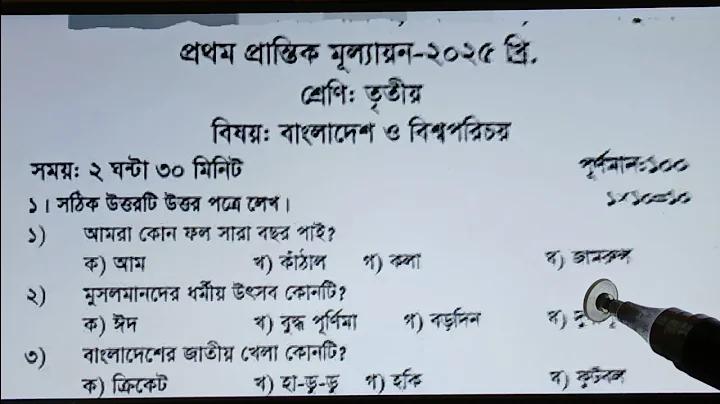 প্রথম প্রান্তিক মূল্যায়ন-২০২৫ খ্রি.
শ্রেণি: তৃতীয়
বিষয়: বাংলাদেশ ও বিশ্বপরিচয়
সময়: ২ ঘন্টা ৩০ মিনিট পূর্ণমান:১০০
১। সঠিক উত্তরটি উত্তর পত্রে লেখ। ১×১০=১০
১) আমরা কোন ফল সারা বছর পাই?
ক) আম খ) কাঁঠাল গ) কলা ঘ) জামরুল
২) মুসলমানদের ধর্মীয় উৎসব কোনটি?
ক) ঈদ খ) বুদ্ধ পূর্ণিমা গ) বড়দিন ঘ)
৩) বাংলাদেশের জাতীয় খেলা কোনটি?
ক) ক্রিকেট খ) হা-ডু-ডু গ) হকি ঘ) ফুটবল